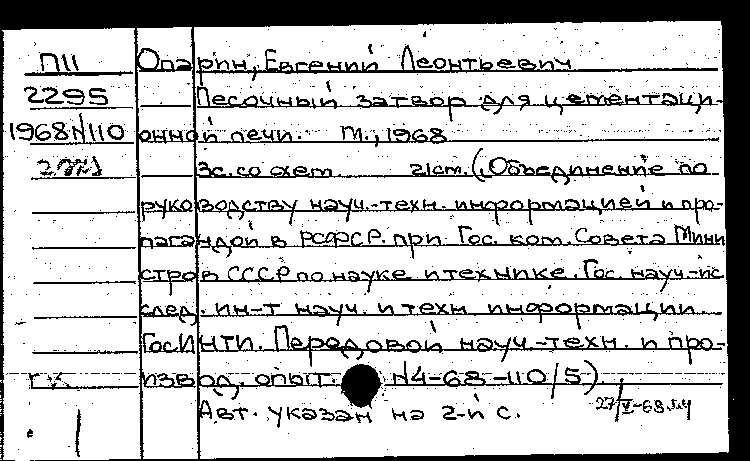 П11 Опарин, Евгений Леонтьевич
2295 Песочный затвор для цементаци-
1968N110 онной печи. М., 1968
3с. со схем. 21см. (Объединение по
руководству науч.-техн. информацией и про-
пагандой в РСФСР при Гос. ком. Совета Мини
стров СССР по науке и технике. Гос. науч-ис
след. ин-т науч. и техн. информации
ГосИНТИ. Передовой науч.-техн. и про-
извод. опыт. N4-68-110/5)
Авт. указан на 2-й с.